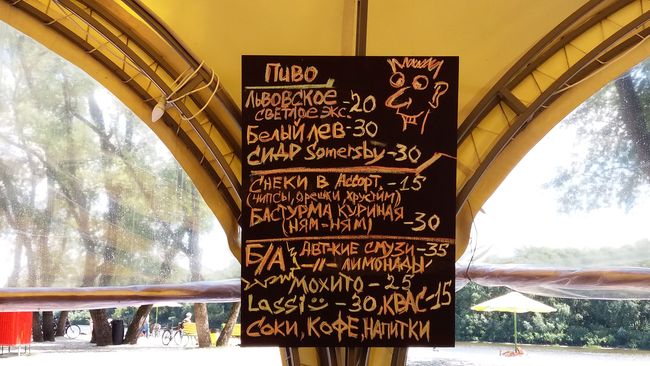 Пиво
Львовское
светлое экс. -20
Белый лев -30
Сидр Somersby -30
Снеки в Ассорт. -15
(чипсы, орешки, хрусим)
Бастурма куриная
(ням-ням) -30
Б/А Авт-кие смузи -35
-//- лимонады-
Мохито -25
Lassi -30, Квас -15
Соки, кофе, напитки